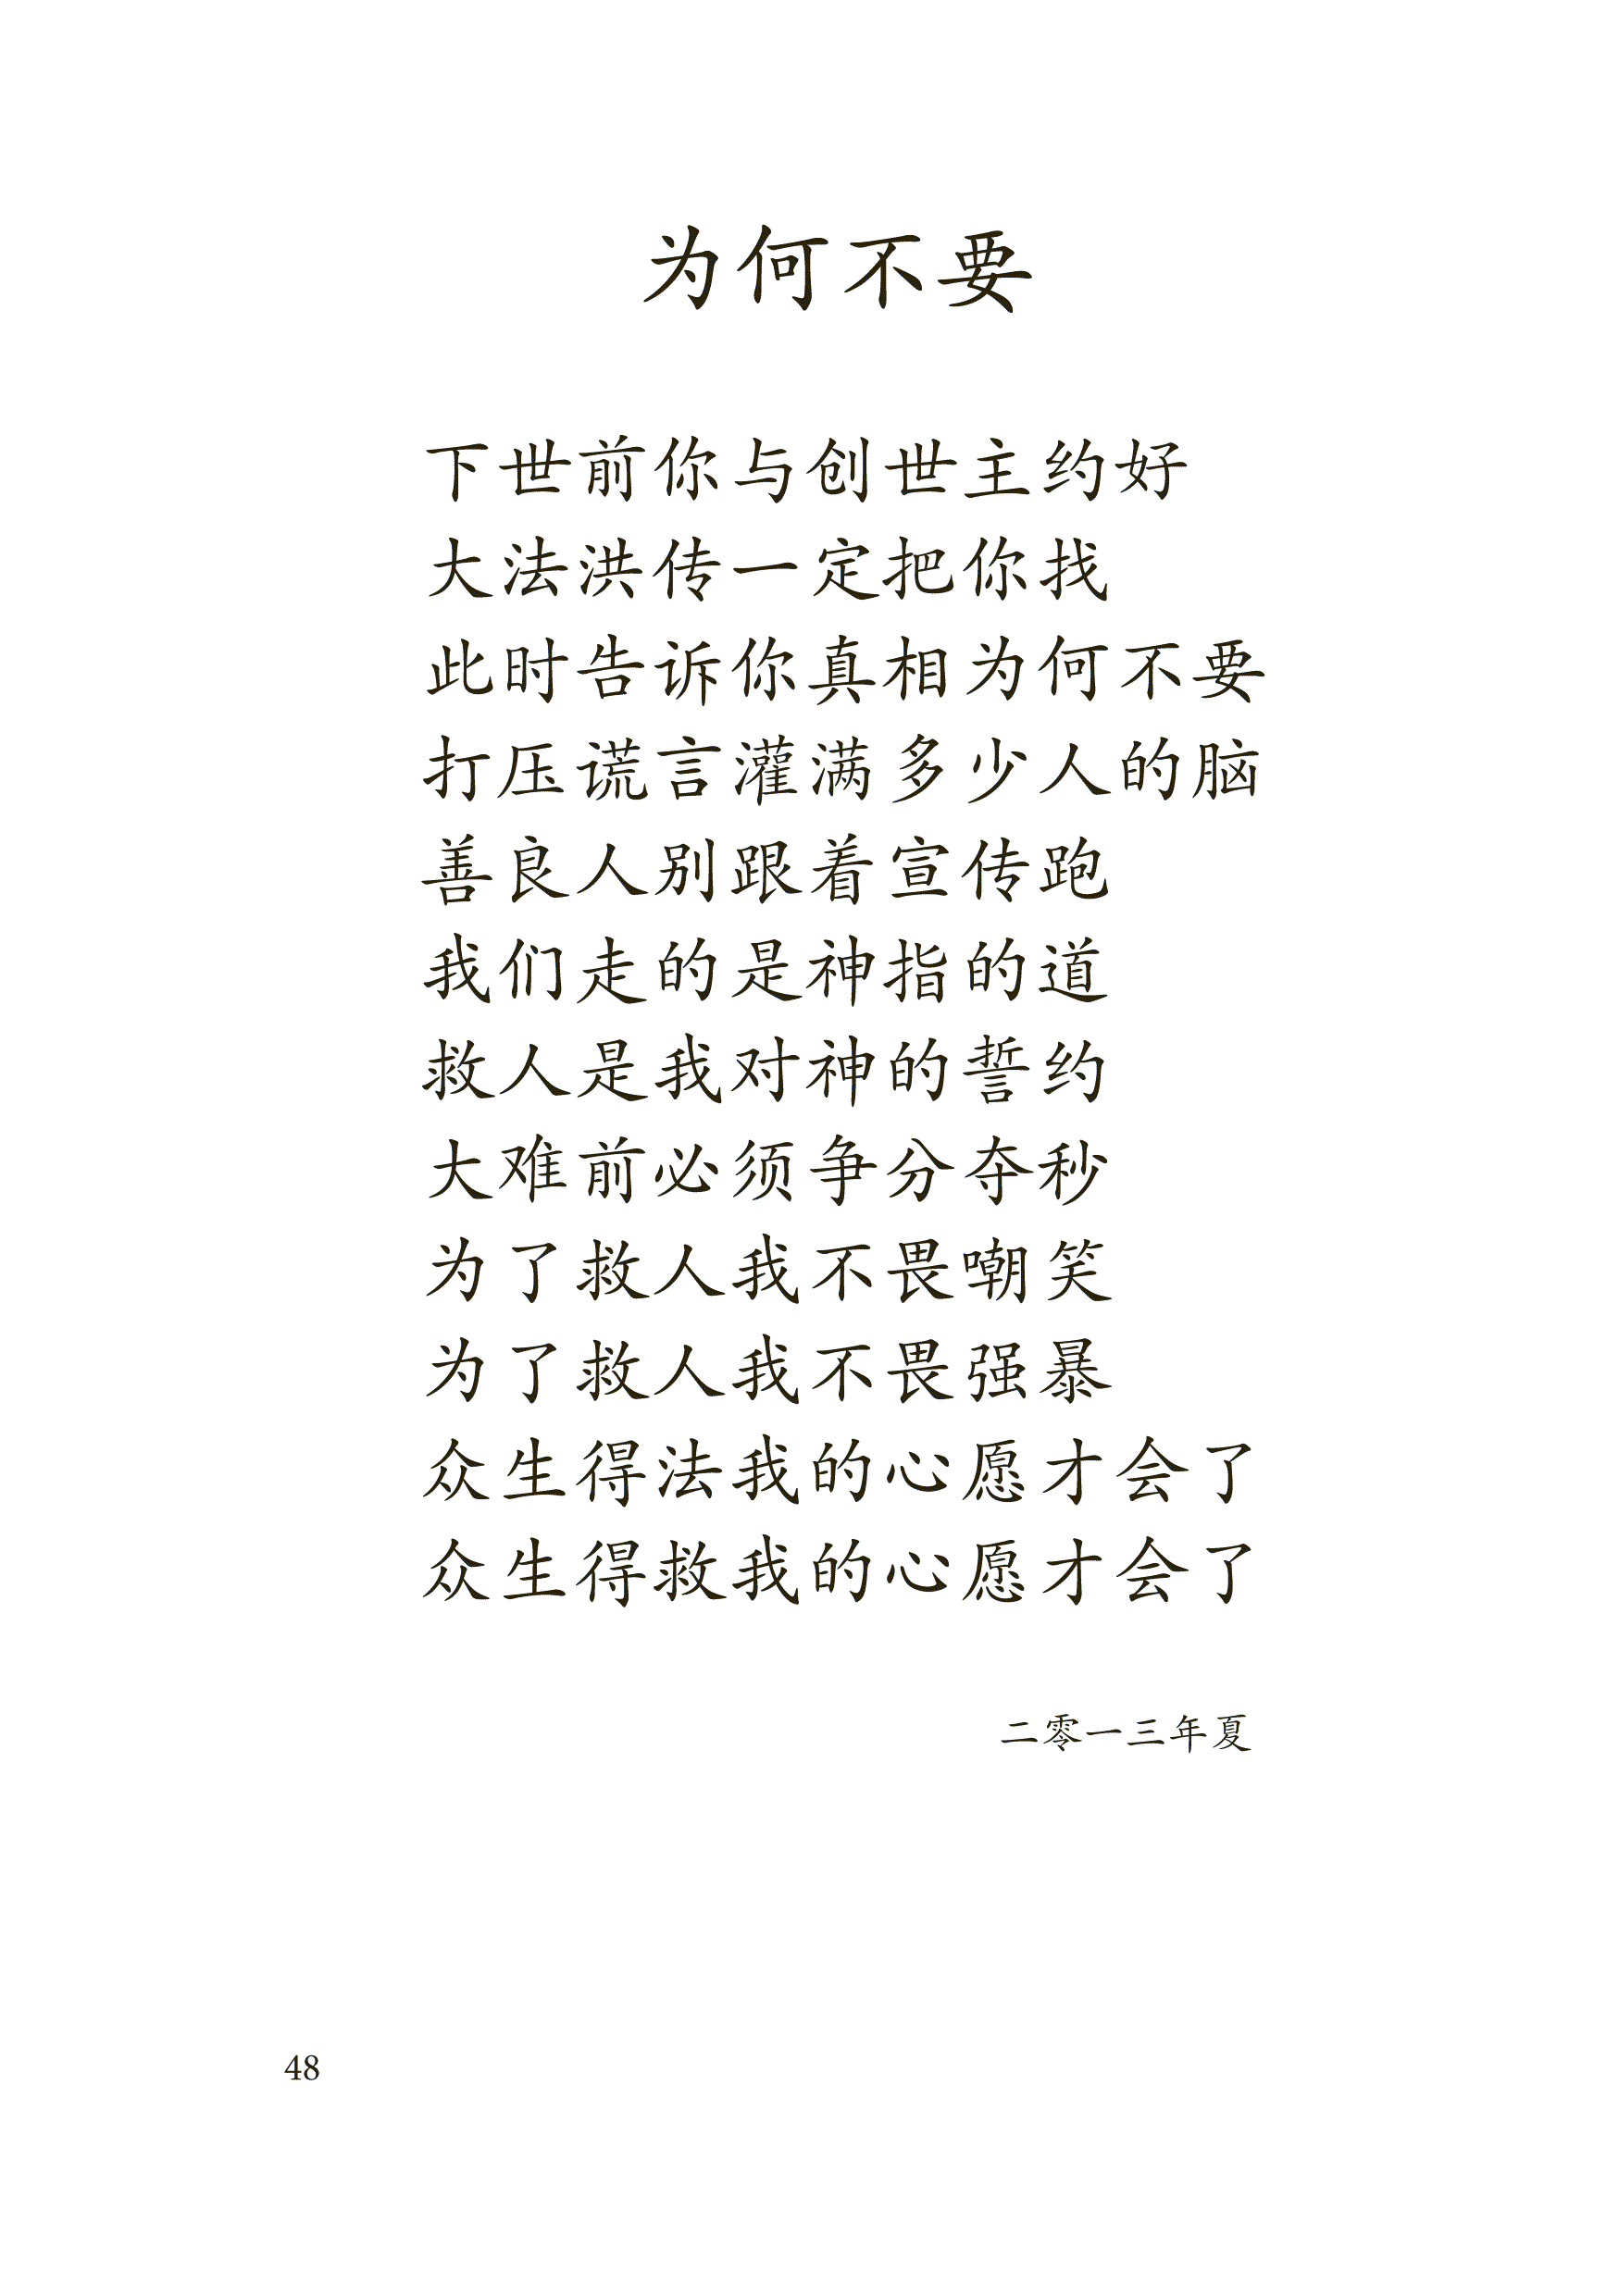 为何不要
下世前你与创世主约好
大法洪传一定把你找
此时告诉你真相为何不要
打压谎言灌满多少人的脑
善良人别跟着宣传跑
我们走的是神指的道
救人是我对神的誓约
大难前必须争分夺秒
为了救人我不畏嘲笑
为了救人我不畏强暴
众生得法我的心愿才会了
众生得救我的心愿才会了
二零一三年夏
48